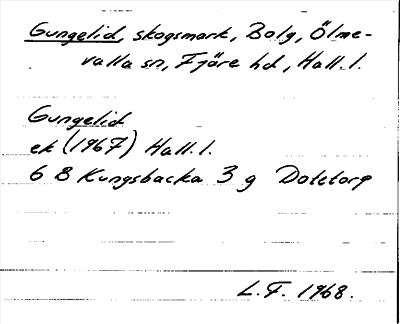 Gungelid, skogsmark, Bolg, Ölme-
valla sn, Fjäre hd, Hall. l.
Gungelid
ek (1967) Hall. l.
6 B Kungsbacka 3 g Dotetorp
L. F. 1968.